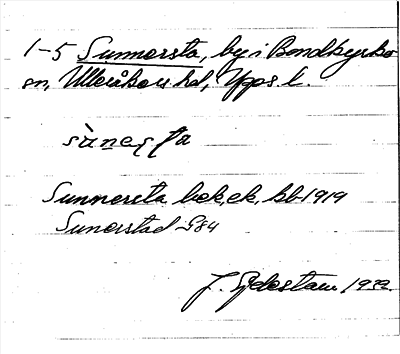 1-5 Sunnersta, by i Bondkyrko
sn, Ulleråkers hd, Upps. l.
Sunnersta bok, ek, kb 1919
Sunerstad -S84
J. Sjdestam 1932.